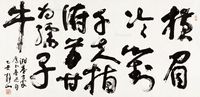 横眉
冷對
千夫指
俯首甘
為孺子
牛